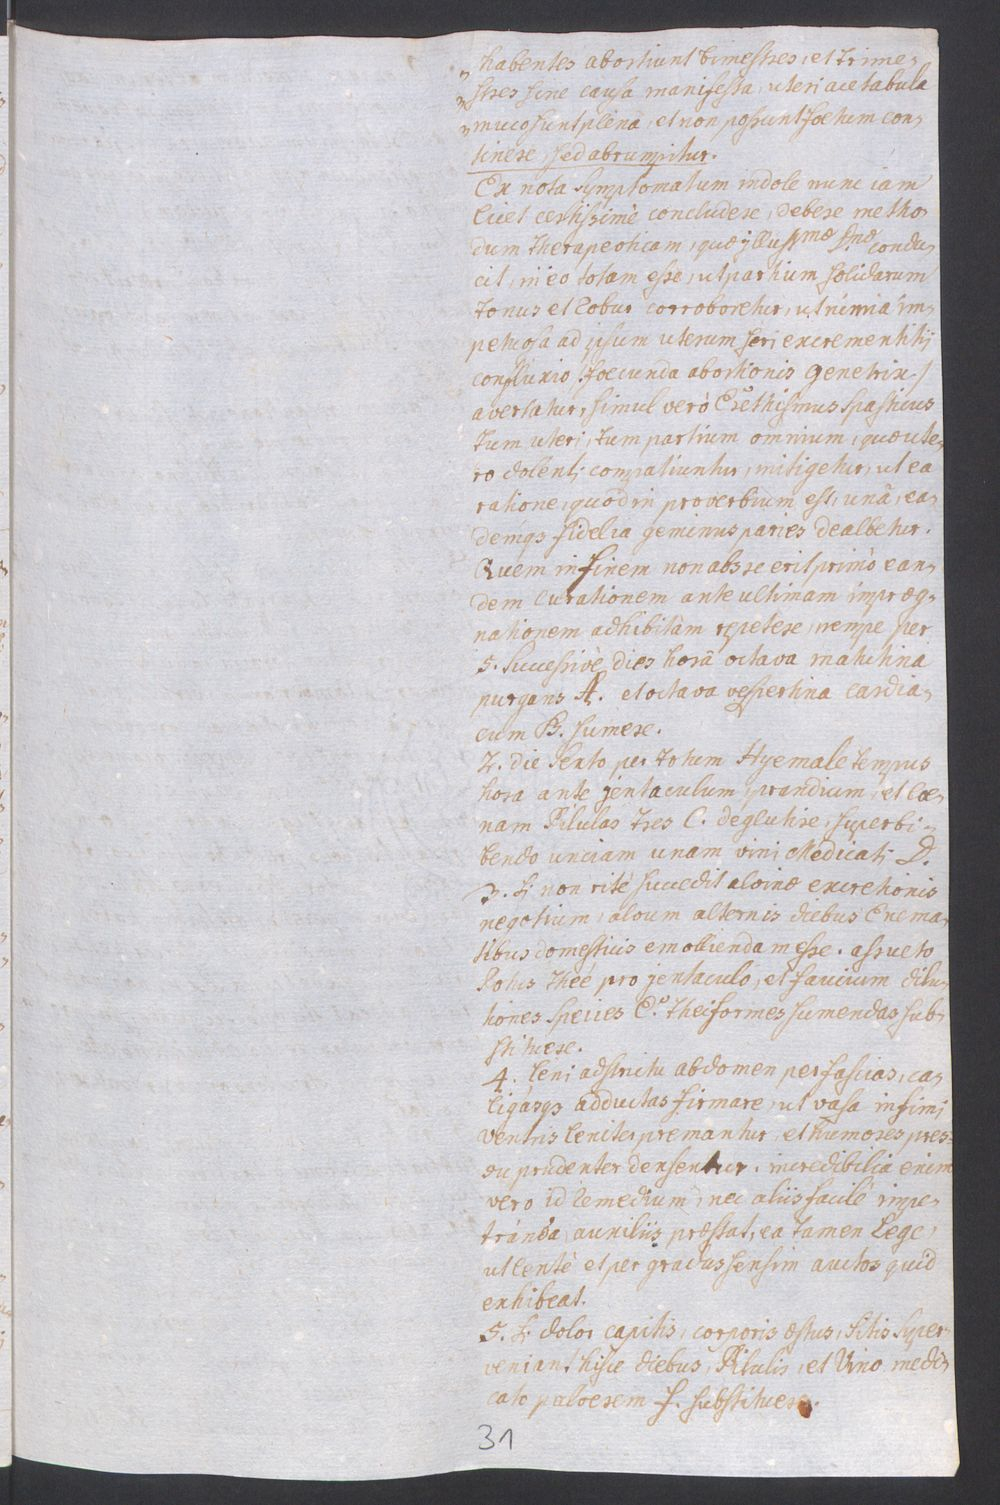 habentes abortiunt bimestres, et trime,
stres sine causa manifesta, uteri acetabula
muco sunt plena, et non possunt foetum con,
tinere, sed abrumpitur.
Ex nota symptomatum indole nunc iam
licet certissimè concludere, debere metho
dum therapeoticam, quæ jllussmæ Dnæ condu,
cit, in eo totam esse, ut partium solidarum
tonus et robur corroboretur, ut nimia im,
petuosa ad ipsum uterum seri excrementitij
confluxio, foecunda abortionis genetrix /
avertatur, simul verò Erethismus spasticus
tum uteri, tum partium omnium, quæ ute,
ro dolenti compatiuntur, mitigetur, ut ea
ratione, quod in proverbium est, unâ, ea,
demqs fidelia geminus paries dealbetur.
Quem in finem non abs re erit primò ean,
dem curationem ante ultimam impræg,
nationem adhibitam repetere, nempe per
5. successivè dies horâ octava matutina
purgans A. et octava vespertina cardia,
cum B. sumere.
2. die sexto per totum Hyemale tempus
hora ante jentaculum, prandium, et coe,
nam Pilulas tres C. deglutire, superbi,
bendo unciam unam vini Medicati D.
3. si non ritè succedit alvinæ excretionis
negotium, alvum alternis diebus Enema,
tibus domesticis emolliendam esse. assueto
Potus theé pro jentaculo, et faucium dilu,
tiones species E. theiformes sumendas sub,
stituere.
4. leni adstrictu abdomen per fascias, ca,
ligasqs adductas firmare, ut vasa infimi
ventris leniter premantur, et humores pres,
su prudenter densentur. incredibilia enim
vero id remedium, nec aliis facilè impe,
tranda auxiliis præstat, ea tamen Lege,
ut lentè et per gradus sensim auctos quid
exhibeat.
5. si dolor capitis, corporis æstus, sitis super,
veniant hisce diebus, Pilulis, et Vino medi,
cato pulverem F. substituere.
31